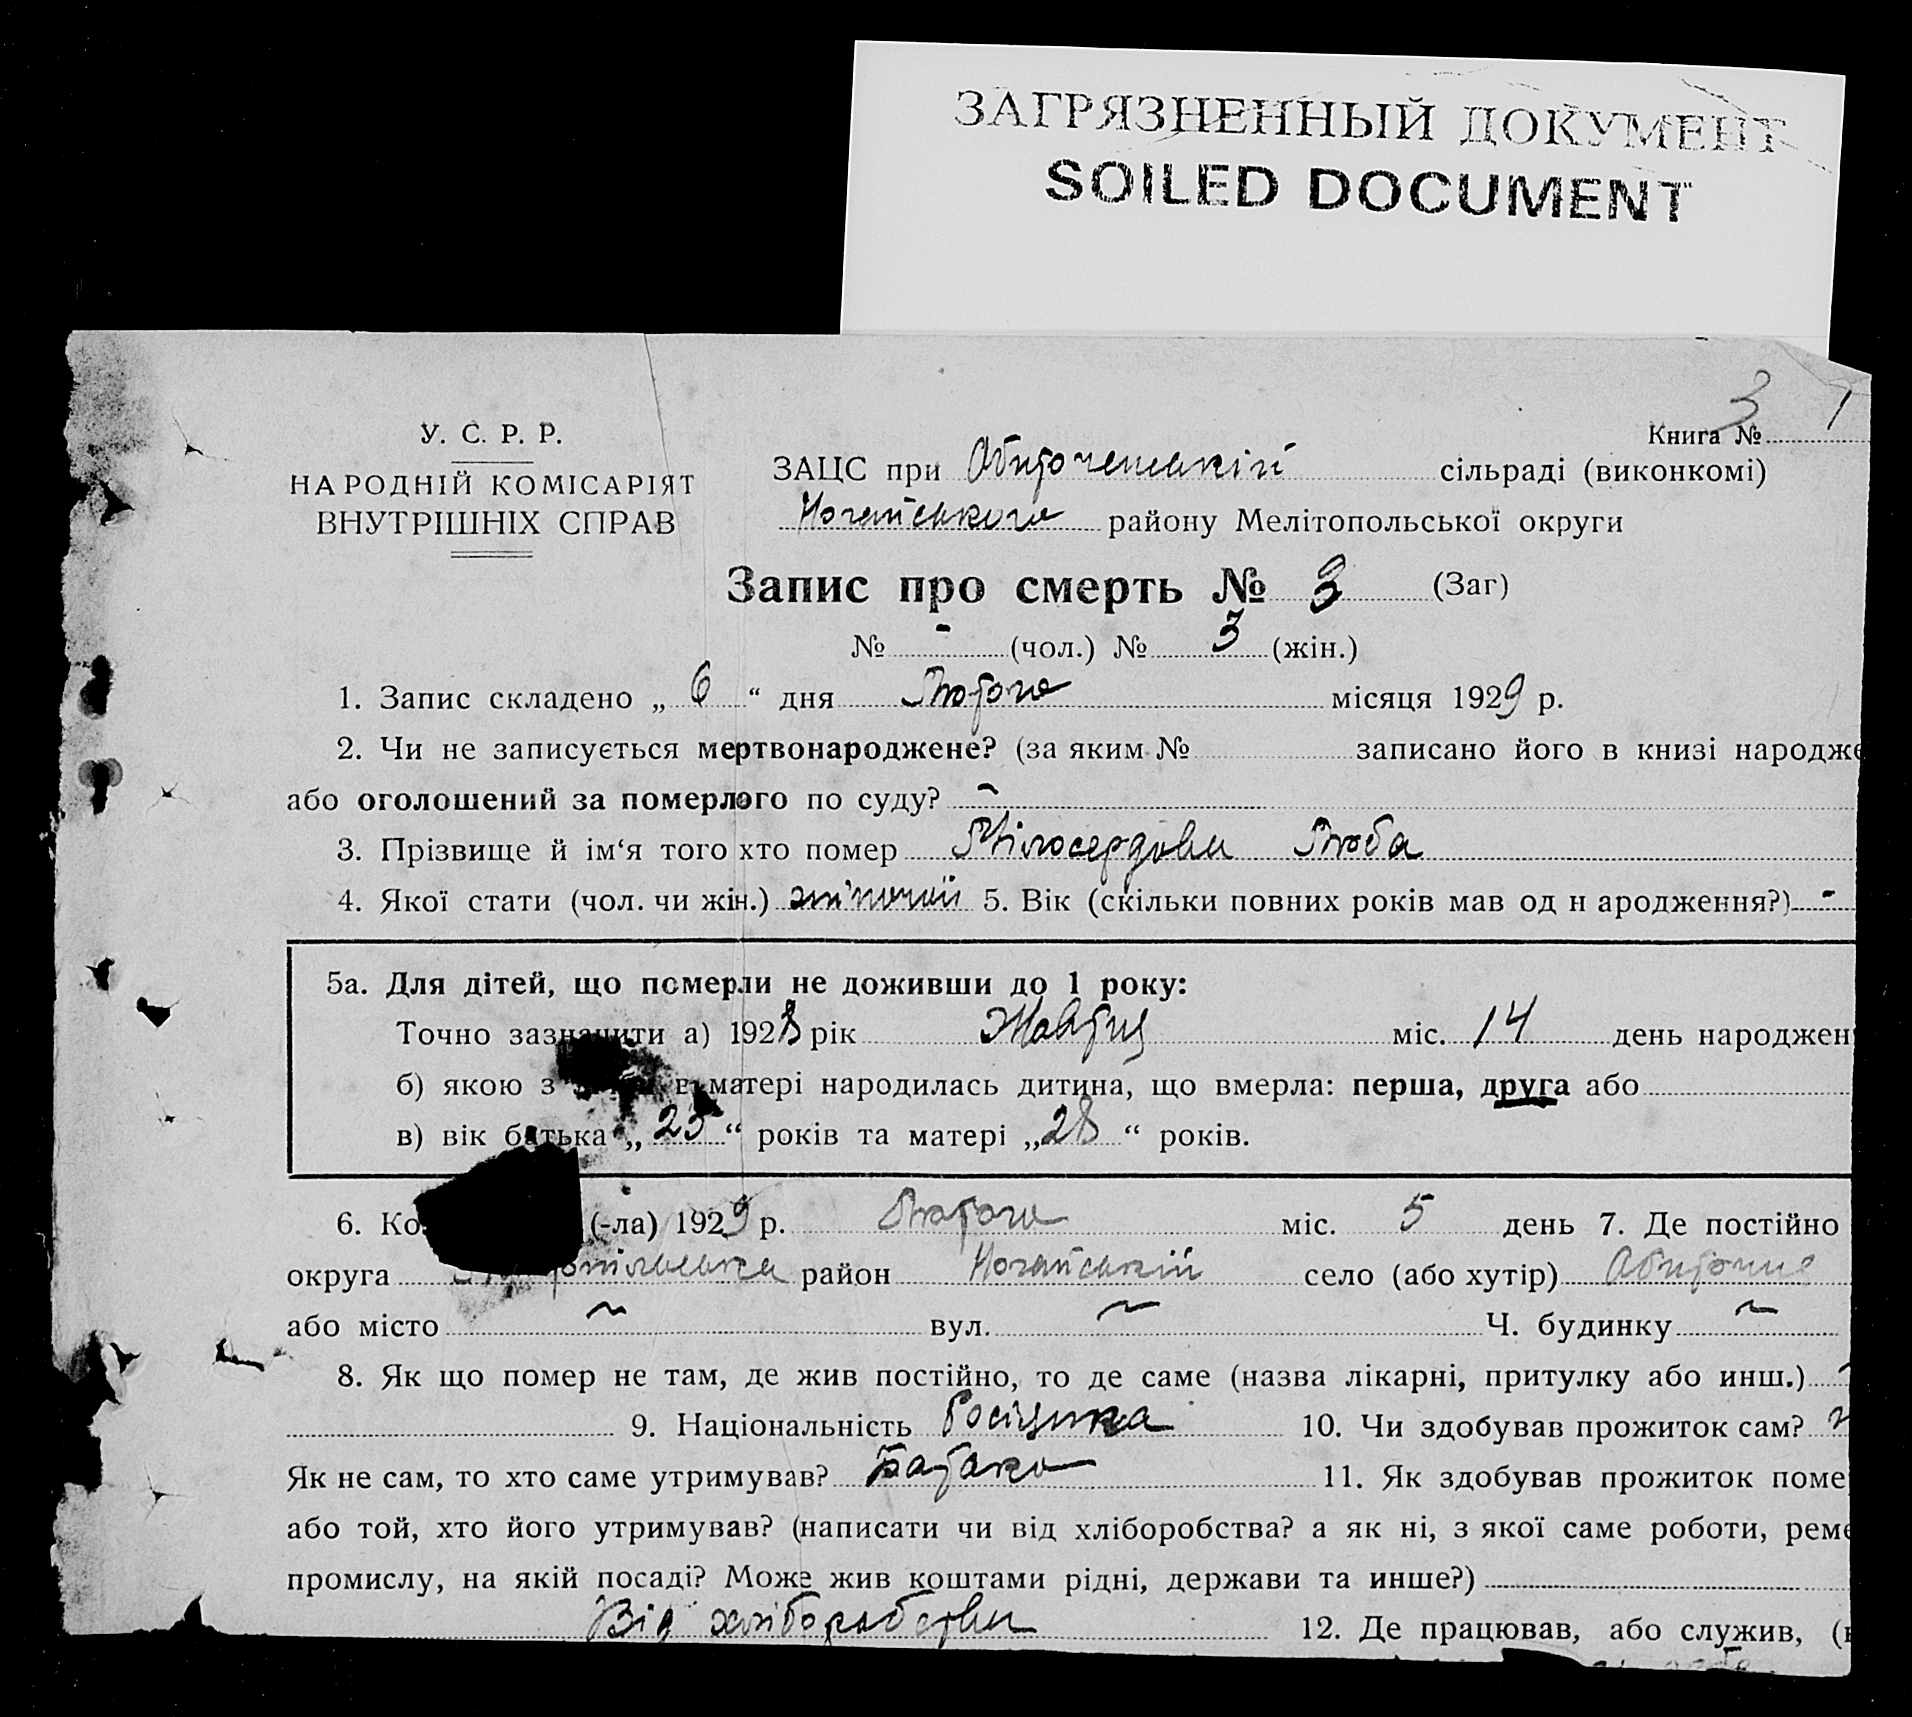 ЗАГРЯЗНЕННЫЙ ДОКУМЕНТ
SOILED DOCUMENT
3 1
У. С. Р. Р.
НАРОДНІЙ КОМІСАРІЯТ
ВНУТРІШНІХ СПРАВ
Книга №
ЗАЦС при Обиточенській сільраді (виконкомі)
Ногайського району Мелітопольської округи
Запис про смерть № 3 (Заг)
№ - (чол.) № 3 (жін.)
1. Запис складено „ 6 “ дня Лютого місяця 1929 р.
2. Чи не записується мертвонароджене? (за яким № записано його в книзі народже
або оголошений за померлого по суду? -
3. Прізвище й ім‘я того хто помер Мілосердова Люба
4. Якої стати (чол. чи жін.) жіночої 5. Вік (скільки повних років мав од н ародження?) -
5а. Для дітей, що померли не доживши до 1 року:
Точно зазначити а) 1928 рік Жовтня міс. 14 день народжен
б) якою з в матері народилась дитина, що вмерла: перша, друга або
в) вік батька „ 25 “ років та матері „ 28 “ років.
6. Ко (-ла) 1929 р. Лютого міс. 5 день 7. Де постійно
округа район Ногайській село (або хутір) Обиточне
або місто ~ вул. ~ Ч. будинку ~
8. Як що помер не там, де жив постійно, то де саме (назва лікарні, притулку або инш.)
9. Національність Росіянка 10. Чи здобував прожиток сам?
Як не сам, то хто саме утримував? Батько 11. Як здобував прожиток поме
або той, хто його утримував? (написати чи від хліборобства? а як ні, з якої саме роботи, реме
промислу, на якій посаді? Може жив коштами рідні, держави та инше?)
Від хліборобства 12. Де працював, або служив, (